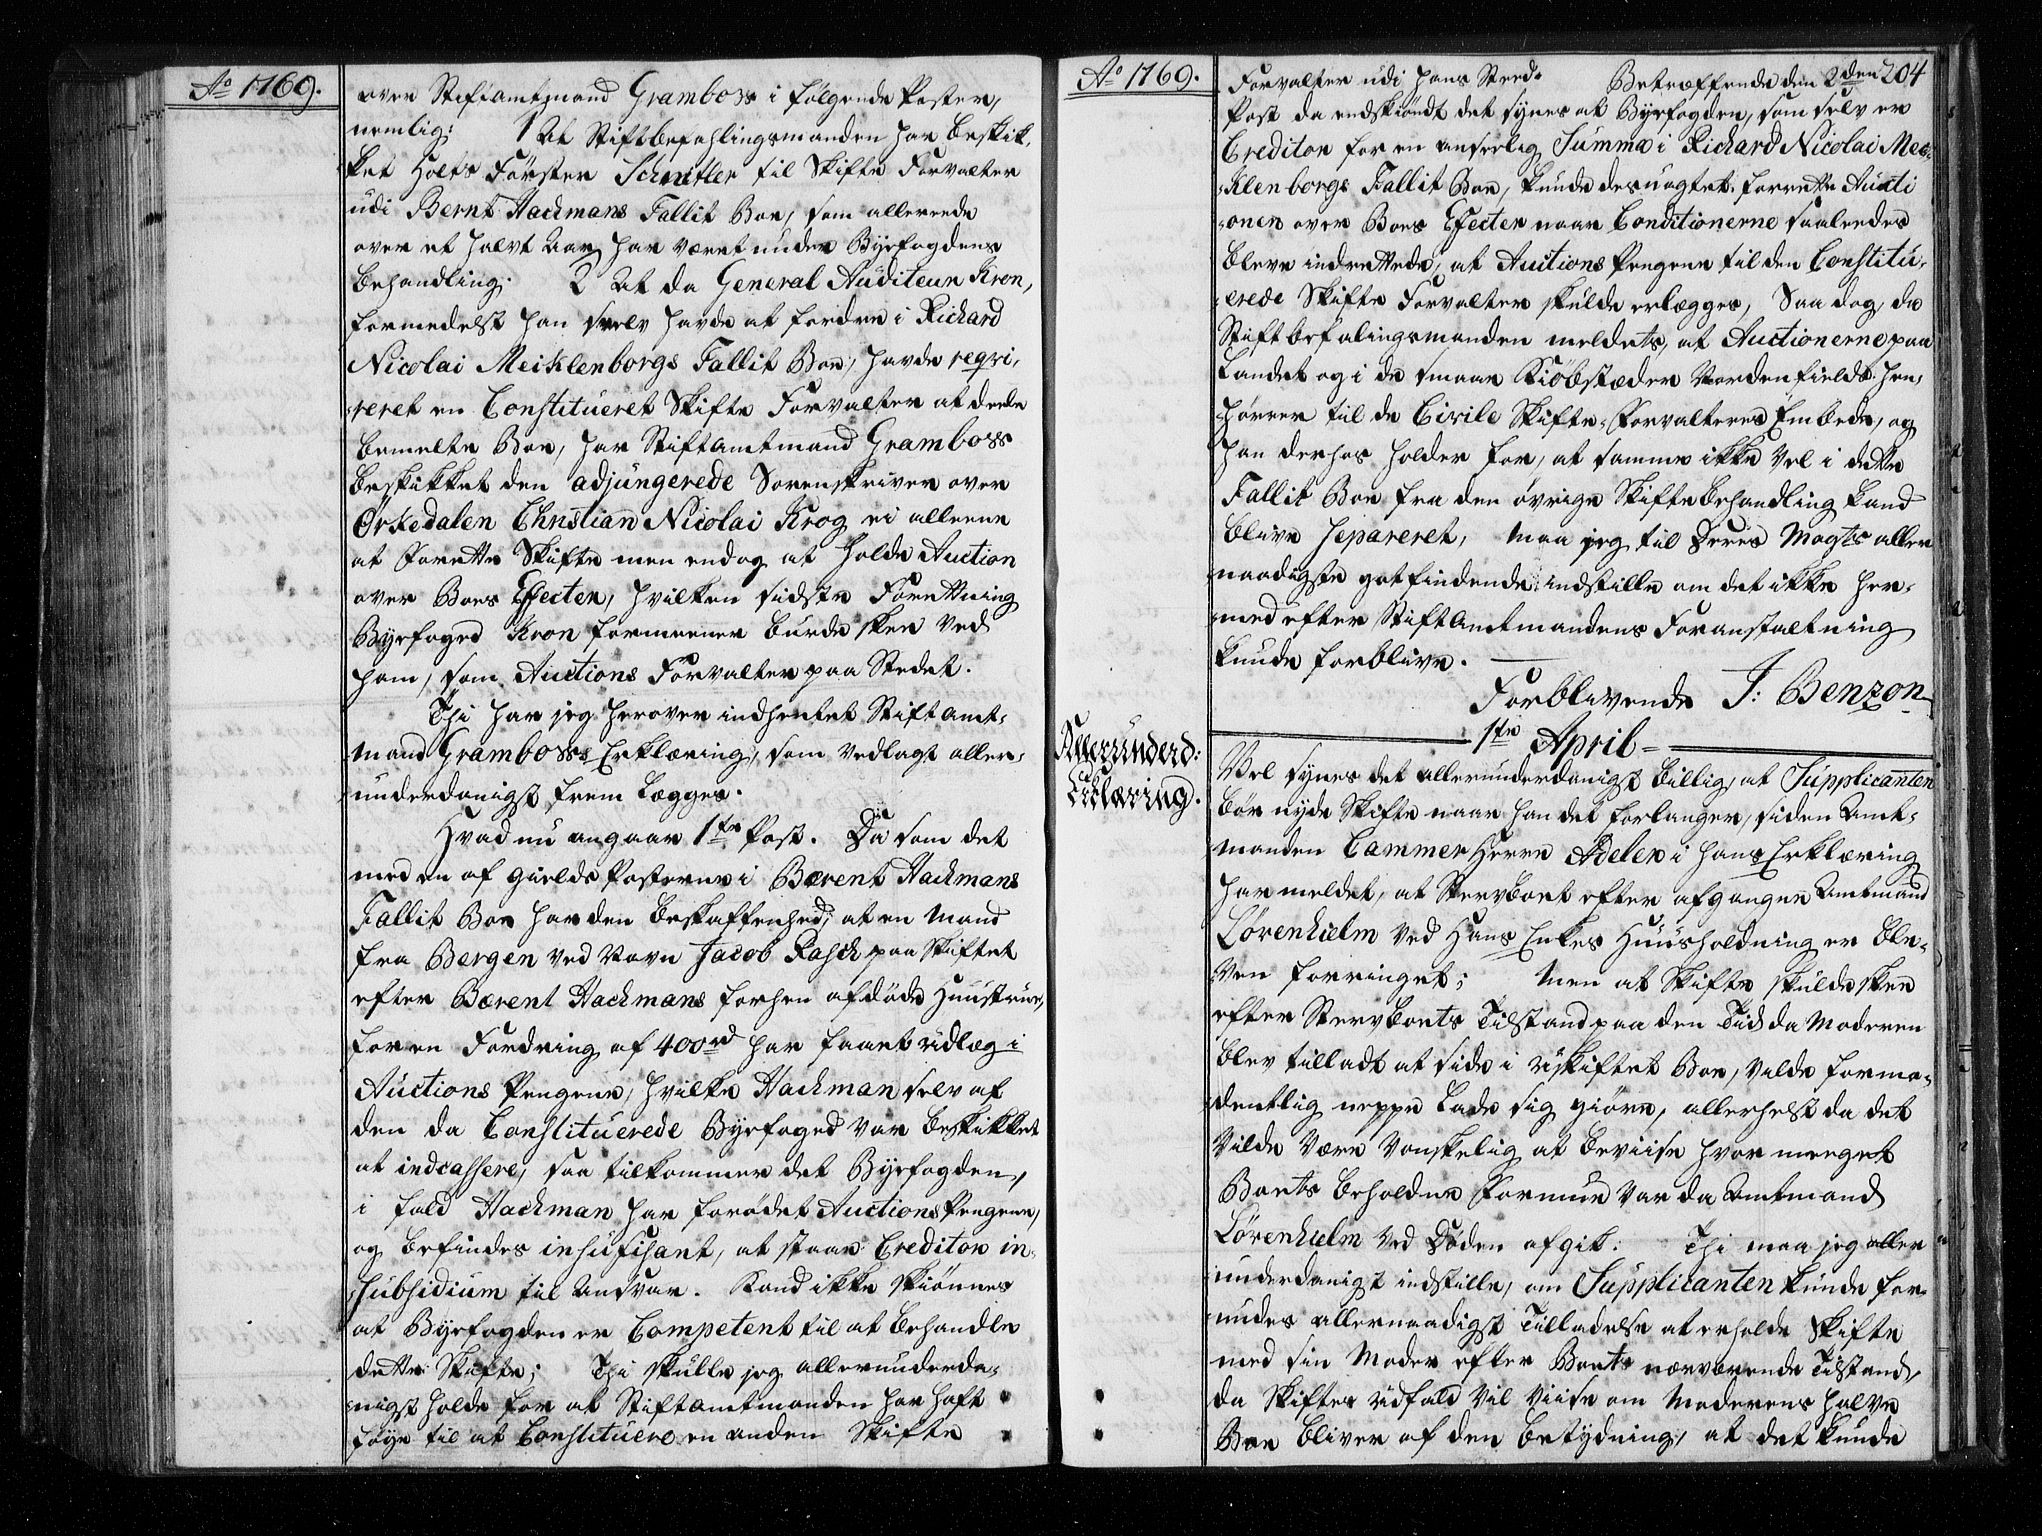 Ao 1769.
over Stiftamtmand Grambow i følgende Poster,
nemlig: 1 At Stiftbefahlingsmanden har beskik-
ket Holts Förster Schnitler til Skifte Forvalter
udi Bernt Hackmans Fallit Boe, som allereede
over et halvt Aar har været under Byefogdens
behandling. 2 At da General Auditeur Kron,
formedelst han selv havde at fordre i Richard
Nicolai Meiklenborgs Fallit Boe, havde reqvi-
reret en Constitueret Skifte Forvalter at dele
bemelte Boe, har Stiftamtmand Grambow
beskikket den adjungerede Sorenskriver over
Örkedalen Christian Nicolai Krog ei alleene
at forette Skifte men endog at holde Auction
over Boes Effecter, hvilken sidste Forettning
Byefoged Kron formeener burde skee ved
ham, som Auctions Forvalter paa Stedet.
Thi har jeg herover indhentet Stiftamt-
mand Grambows Erklæring, som vedlagt aller-
underdanigst frem lægges.
Hvad nu angaar 1ste Post. Da som det
med en af gields Posterne i Bærent Hackmans
Fallit Boe har den beskaffenhed, at en Mand
fra Bergen ved Navn Jacob Rasch paa Skiftet
efter Bærent Hackmans forhen afdöde Huustrue,
for en Fordring af 400rd har faaet udlæg i
Auctions Pengene, hvilke Hackman selv af
den da Constituerede Byefoged var beskikket
at indcassere, saa tilkommer det Byefogden,
i fald Hackman har forødet Auctions Pengene,
og befindes insufisant, at staae Creditor in
subsidium til Ansvar. Kand ikke skiönnes
at Byefogden er Competent til at behandle
dette Skifte; Thi skulle jeg allerunderda-
nigst holde for at Stiftamtmanden har haft
föye til at Constituere en anden Skifte
Ao 1769.
204
Forvalter udi hans Sted. Betræffende den 2den
Post da endskiöndt det synes at Byefogden, som selv er
Creditor for en anseelig Summa i Richard Nicolai Mec-
klenborgs Fallit Boe, kunde desuagtet forrette Aucti
onen over Boes Effecter naar Conditionerne saaledes
bleve indrettede, at Auctions Pengene til den Constitu-
erede Skifte Forvalter skulde erlægges, Saa dog, da
Stiftbefalingsmanden meldets, at Auctionerne paa
Landet og i de smaae Kiöbstæder Nordenfields hen-
hörrer til de Civile Skifte-Forvalteres Embede, og
han derhos holder for, at samme ikke vel i dette
Fallit Boe fra den övrige Skiftebehandling kand
blive separeret, maa jeg til Deris Mayts aller
naadigste gotfindende indstille om det ikke her-
med efter Stiftamtmandens Foranstaltning
kunde forblive.
Forblivende J: Benzon
1ste April
Allerunderd:
Erklæring.
Vel synes det allerunderdanigst billig, at Supplicanten
bör nyde Skifte naar han det forlanger, siden Amt-
manden Cammer Herre Adeler i hans Erklæring
har meldet, at Stervboet efter afgangne Amtmand
Lövenhielm ved Hans Enkes Huusholdning er ble-
ven forringet; Men at Skifte skulde skee
efter Stervboets Tilstand paa den Tid da Moderen
blev tilladt at side i uskiftet Boe, vilde forme-
dentlig neppe lade sig giöre, allerhelst da det
vilde være vanskelig at beviise hvor meeget
Boets beholdne Formue var da Amtmand
Lövenhielm ved Döden afgik. Thi maa jeg aller
underdanigst indstille, om Supplicanten kunde for-
undes allernaadigst Tilladelse at erholde Skifte
med sin Moder efter Boets nærværende Tilstand,
da Skiftes udfald vil viise om Moderens halve
Boe bliver af den betydning, at det kunde